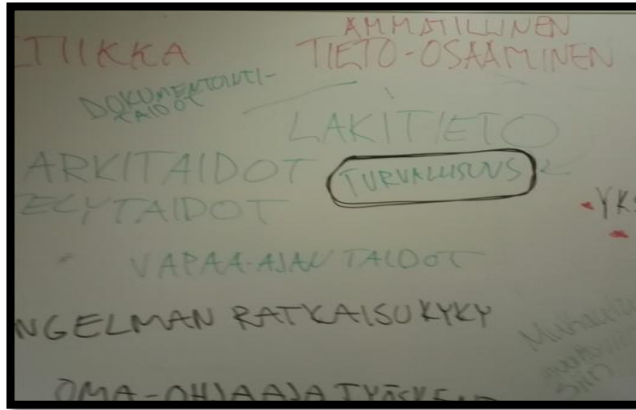 AMMATILLINEN
ETIIKKA TIETO-OSAAMINEN
DOKUMENTOINTI-
TAIDOT
LAKITIETO
ARKITAIDOT TURVALLISUUS
ELYTAIDOT
YKS
VAPAA-AJAN TAIDOT
NGELMAN RATKAISUKYKY
OMA-OHJAAJATYÖSKEN